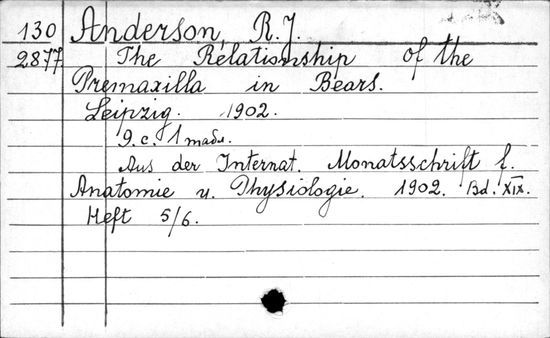 130 Anderson, R. J.
2877 The Relationship of the
Premaxilla in Bears.
Leipzig. 1902.
9. c. 1 табл.
Aus der Internat. Monatsschrift f.
Anatomie u. Physiologie. 1902. Bd. XIX.
Heft 5/6.